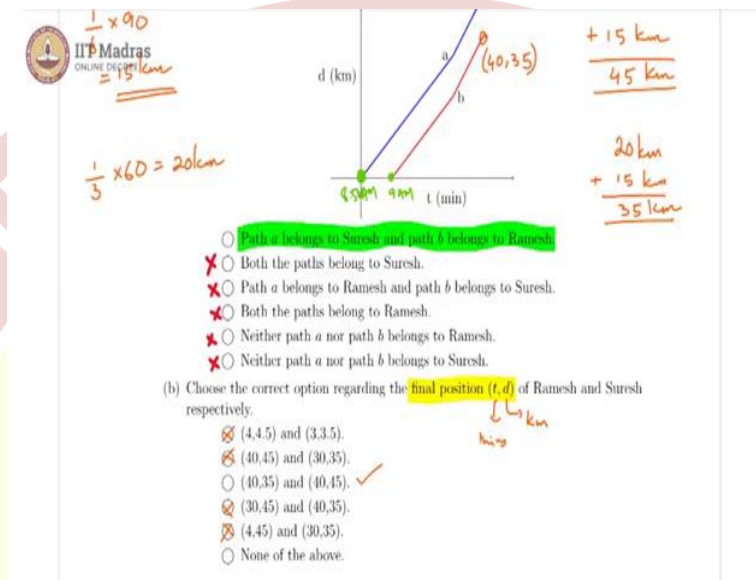 1/6 × 90
= 15 km
IIT Madras
ONLINE DEGREE
1/3 × 60 = 20 km
d (km)
a
b
(40,35)
+ 15 km
45 km
20 km
+ 15 km
35 km
8:50AM 9AM t (min)
Path a belongs to Suresh and path b belongs to Ramesh.
Both the paths belong to Suresh.
Path a belongs to Ramesh and path b belongs to Suresh.
Both the paths belong to Ramesh.
Neither path a nor path b belongs to Ramesh.
Neither path a nor path b belongs to Suresh.
(b) Choose the correct option regarding the final position (t, d) of Ramesh and Suresh
respectively.
km
mins
(4,4.5) and (3,3.5).
(40,45) and (30,35).
(40,35) and (40,45).
(30,45) and (40,35).
(4,45) and (30,35).
None of the above.